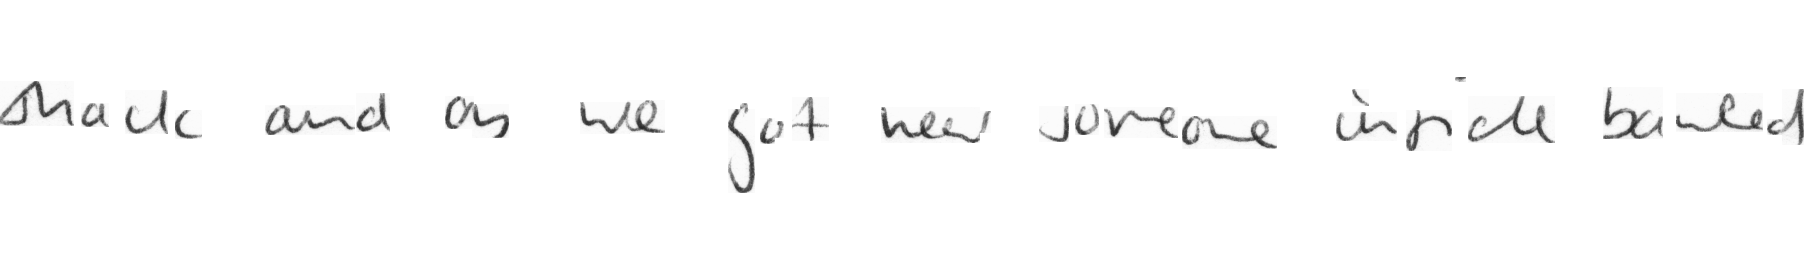 shack and as we got near someone inside bawled